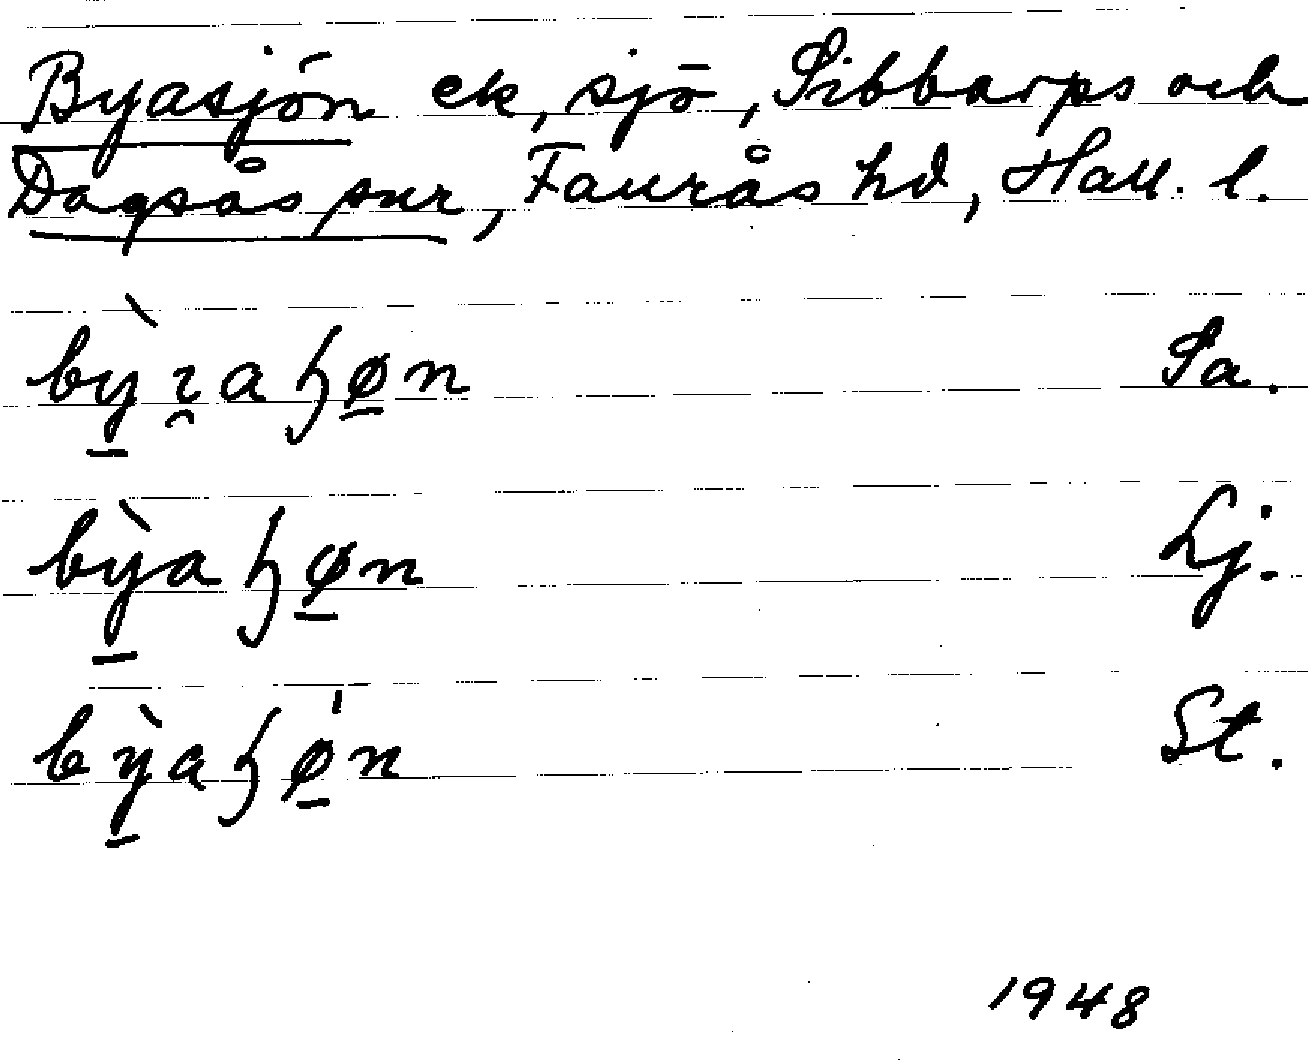 Byasjön ek, sjö, Sibbarps och
Dagsås snr, Faurås hd, Hall. l.
bỳ̱ɿ̯aɧø̱n Sa.
bỳ̱aɧø̱n Lj.
bỳ̱aɧǿ̱n St.
1948